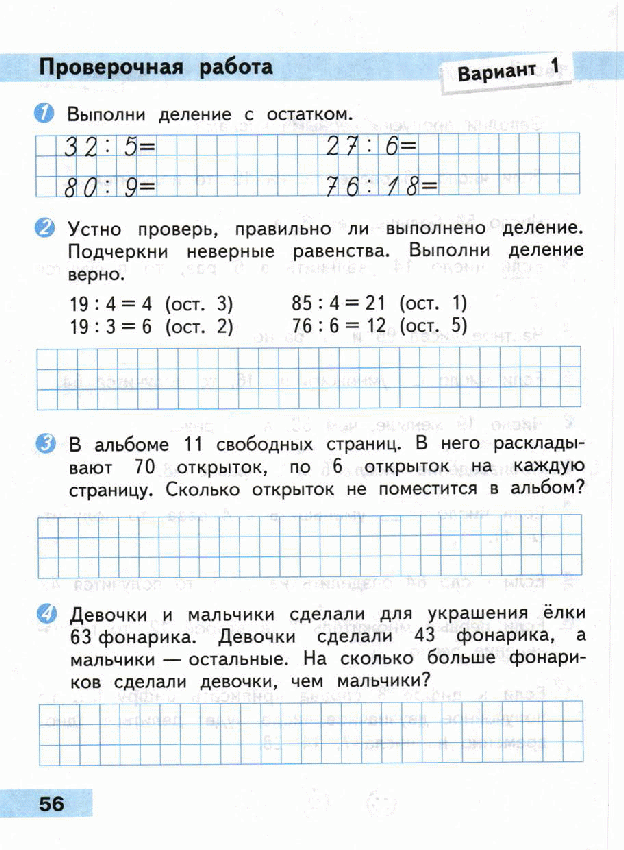 Проверочная работа
Вариант 1
1 Выполни деление с остатком.
32 : 5= 27 : 6=
80 : 9= 76 : 18=
2 Устно проверь, правильно ли выполнено деление.
Подчеркни неверные равенства. Выполни деление
верно.
19 : 4 = 4 (ост. 3) 85 : 4 = 21 (ост. 1)
19 : 3 = 6 (ост. 2) 76 : 6 = 12 (ост. 5)
3 В альбоме 11 свободных страниц. В него расклады-
вают 70 открыток, по 6 открыток на каждую
страницу. Сколько открыток не поместится в альбом?
4 Девочки и мальчики сделали для украшения ёлки
63 фонарика. Девочки сделали 43 фонарика, а
мальчики — остальные. На сколько больше фонари-
ков сделали девочки, чем мальчики?
56